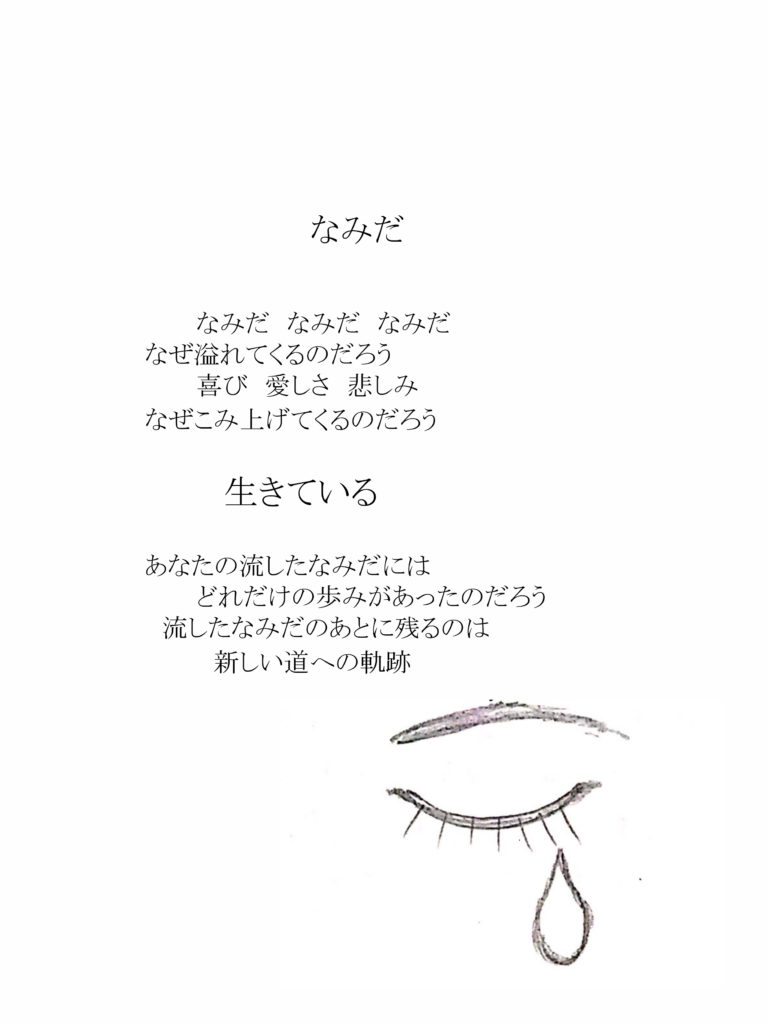 なみだ
なみだ　なみだ　なみだ
なぜ溢れてくるのだろう
喜び　愛しさ　悲しみ
なぜこみ上げてくるのだろう
生きている
あなたの流したなみだには
どれだけの歩みがあったのだろう
流したなみだのあとに残るのは
新しい道への軌跡